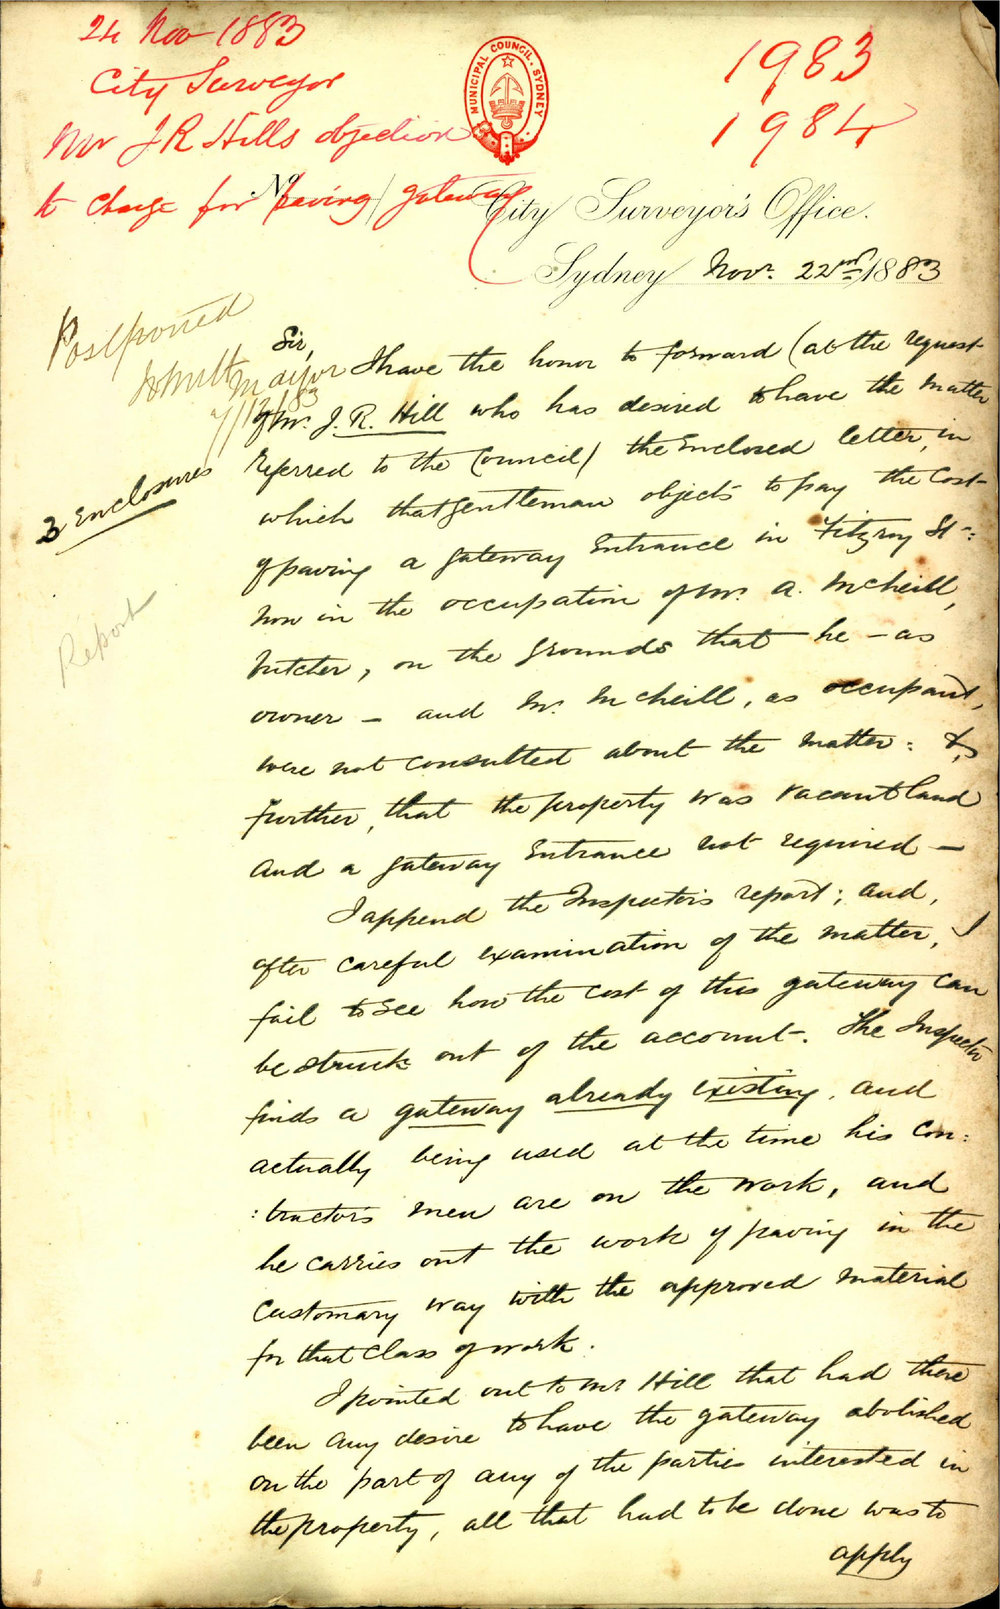 24 Nov 1883
City Surveyor
Mr J R Hills objection
to charge for paving gateway
1983
1984
MUNICIPAL COUNCIL. SYDNEY
No.
City Surveyor's Office.
Sydney Novr. 22nd 1883
Postponed
Mayor
7/12/83
3 Enclosures
Report
Sir,
I have the honor to forward (at the request
of Mr. J. R. Hill who has desired to have the matter
referred to the Council) the enclosed letter, in
which that gentleman objects to pay the cost
of paving a gateway entrance in Fitzroy St:
now in the occupation of Mr. A. McNeill,
butcher, on the grounds that he – as
owner – and Mr. McNeill, as occupant,
were not consulted about the matter: &,
further, that the property was vacant land
and a gateway entrance not required –
I append the Inspector's report; and,
after careful examination of the matter, I
fail to see how the cost of this gateway can
be struck out of the account. The Inspector
finds a gateway already existing, and
actually being used at the time his con:
:tractor's men are on the work, and
he carries out the work of paving in the
customary way with the approved material
for that class of work.
I pointed out to Mr Hill that had there
been any desire to have the gateway abolished
on the part of any of the parties interested in
the property, all that had to be done was to
apply